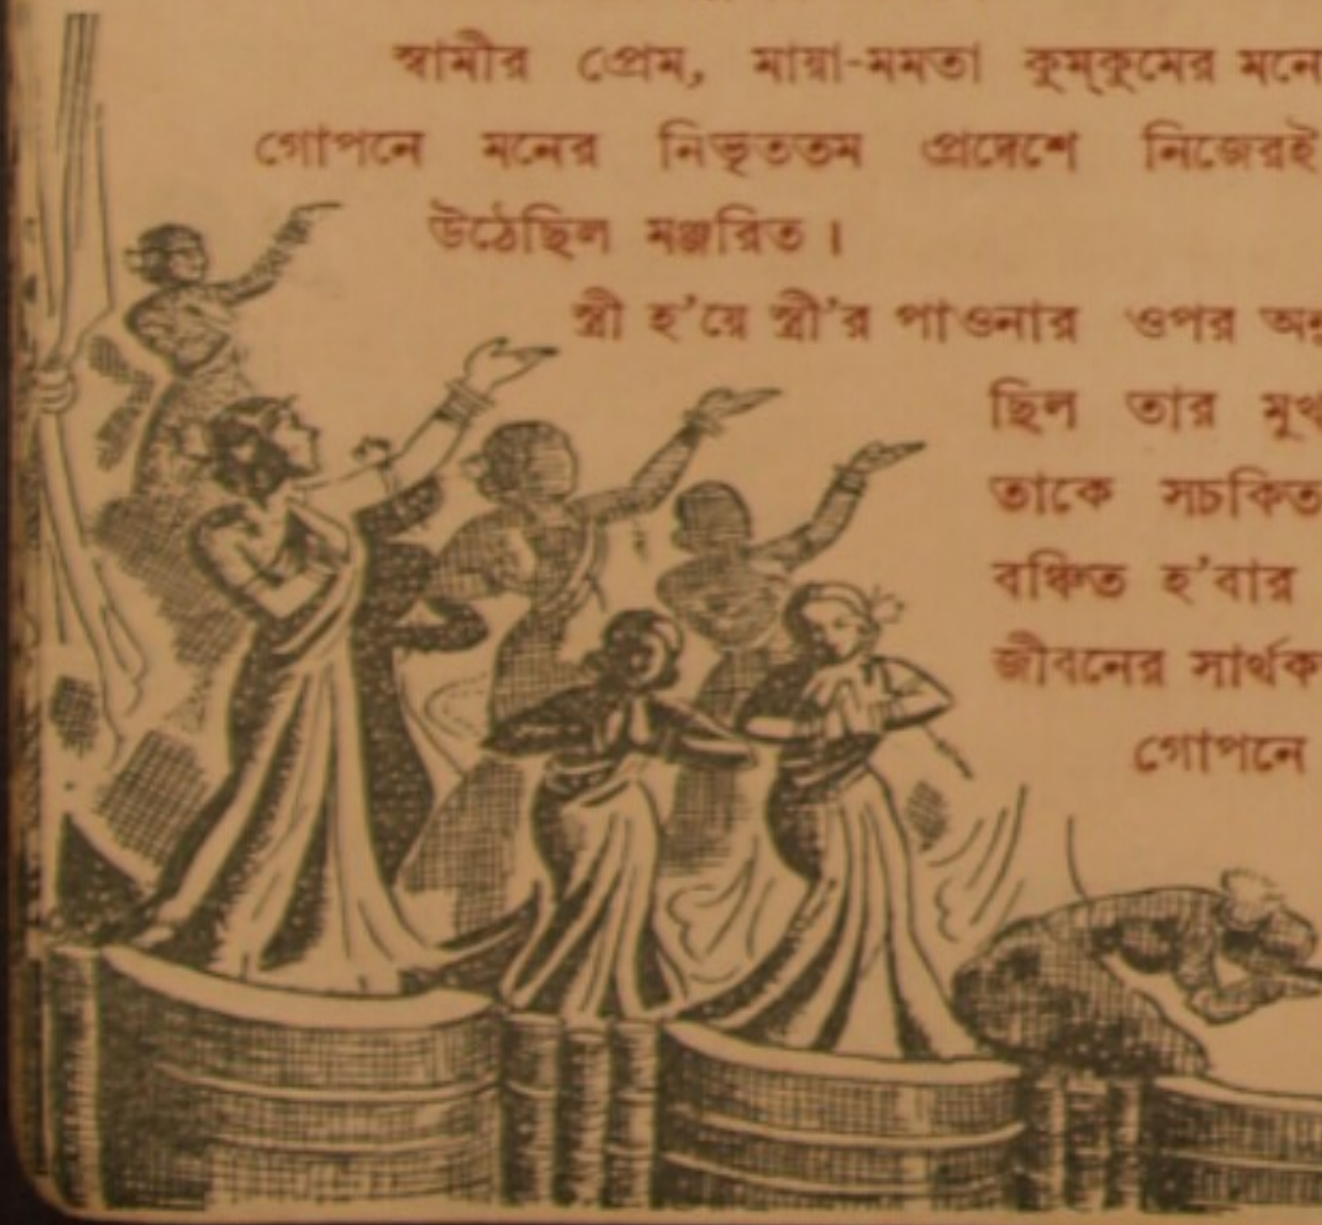 স্বামীর প্রেম, মায়া-মমতা কুম্‌কুমের মনে
গোপনে মনের নিভৃততম প্রদেশে নিজেরই
উঠেছিল মঞ্জরিত।
স্ত্রী হ'য়ে স্ত্রী'র পাওনার ওপর
ছিল তার
তাকে সচকিত
বঞ্চিত হ'বার
জীবনের সার্থক
গোপনে